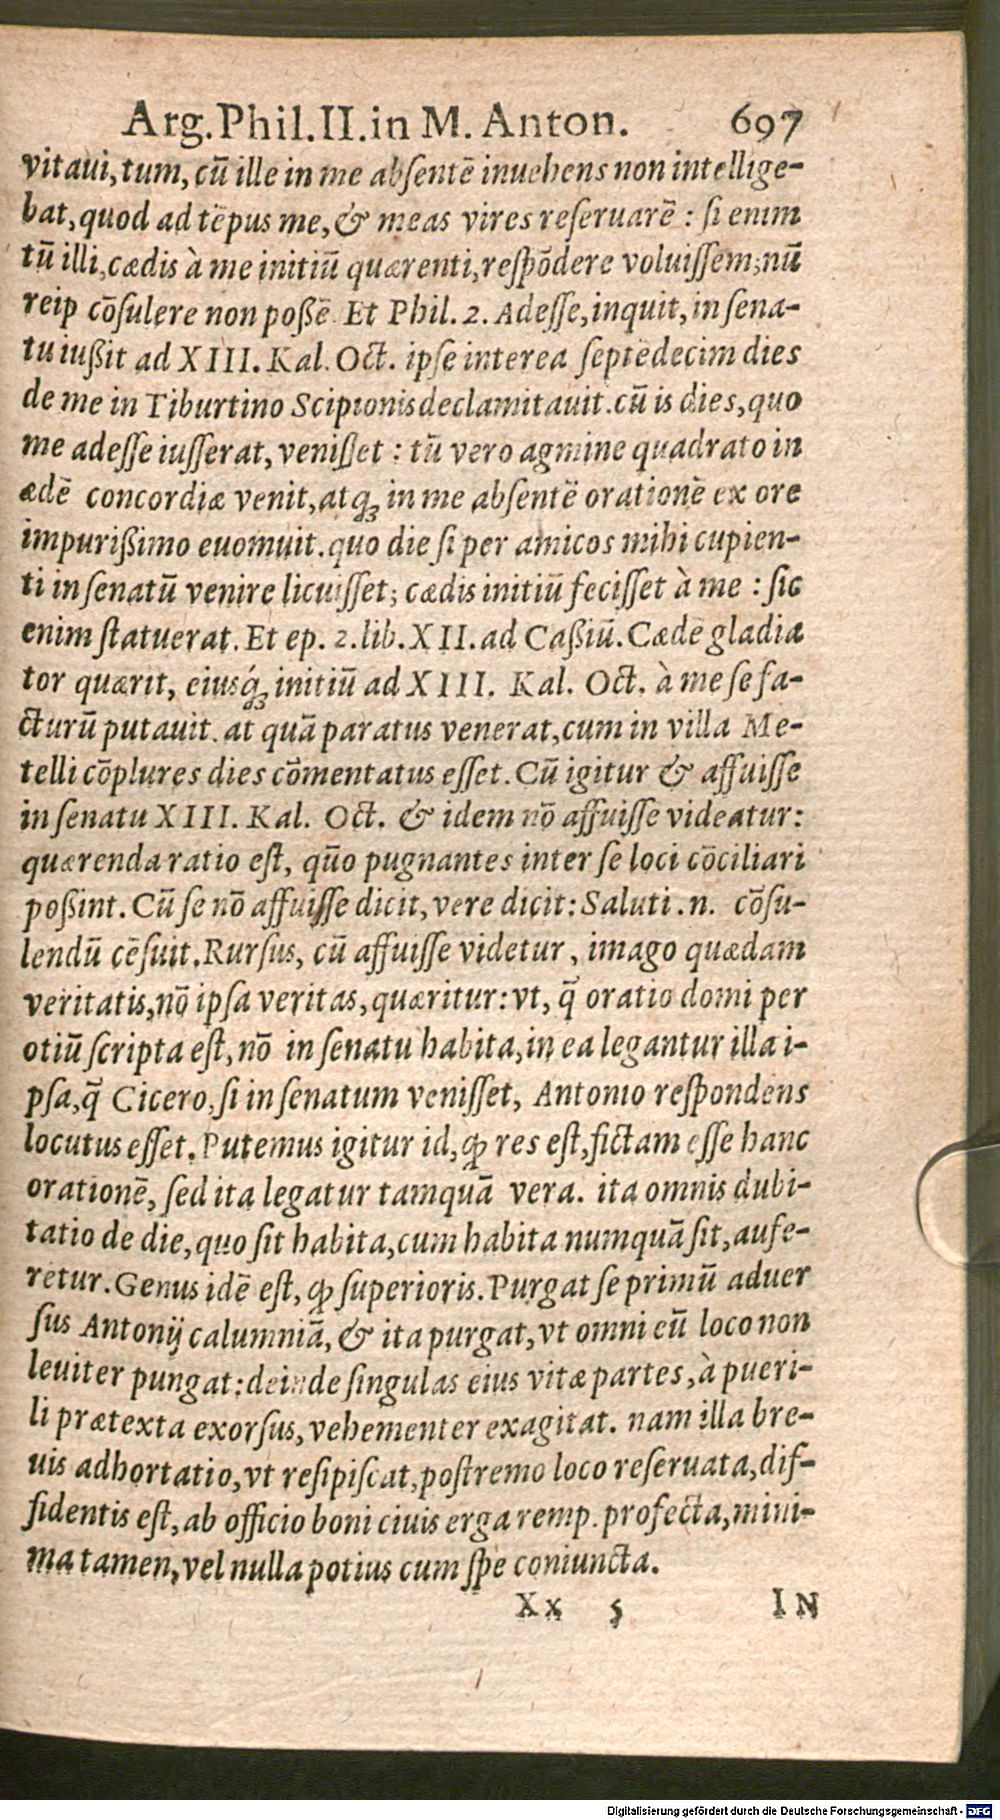 Arg. Phil. II. in M. Anton. 697
vitaui, tum, cū ille in me absentē inuehens non intellige-
bat, quod ad tēpus me, & meas vires reseruarē : si enim
tū illi, cædis à me initiū quærenti, respōdere voluissem, nū
reip cōsulere non possē Et Phil. 2. Adesse, inquit, in sena-
tu iußit ad XIII. Kal. Oct. ipse interea septēdecim dies
de me in Tiburtino Scipionis declamitauit. cū is dies, quo
me adesse iusserat, venisset : tū vero agmine quadrato in
ædē concordiæ venit, atq́ꝫ in me absentē orationē ex ore
impurißimo euomuit. quo die si per amicos mihi cupien-
ti in senatū venire licuisset; cædis initiū fecisset à me : sic
enim statuerat. Et ep. 2. lib. XII. ad Caßiū. Cædē gladia
tor quærit, eiusq́ꝫ initiū ad XIII. Kal. Oct. à me se fa-
cturū putauit. at quā paratus venerat, cum in villa Me-
telli cōplures dies cōmentatus esset. Cū igitur & affuisse
in senatu XIII. Kal. Oct. & idem nō affuisse videatur:
quærenda ratio est, quo pugnantes inter se loci cōciliari
poßint. Cū se nō affuisse dicit, vere dicit: Saluti .n. cōsu-
lendū cēsuit. Rursus, cū affuisse videtur, imago quædam
veritatis, nō ipsa veritas, quæritur: vt, q̄ oratio domi per
otiū scripta est, nō in senatu habita, in ea legantur illa i-
psa, q̄ Cicero, si in senatum venisset, Antonio respondens
locutus esset. Putemus igitur id, ꝙ res est, fictam esse hanc
orationē, sed ita legatur tamquā vera. ita omnis dubi-
tatio de die, quo sit habita, cum habita numquā sit, aufe-
retur. Genus idē est, ꝙ superioris. Purgat se primū aduer
sus Antonij calumniā, & ita purgat, vt omni eū loco non
leuiter pungat: deinde singulas eius vitæ partes, à pueri-
li prætexta exorsus, vehementer exagitat. nam illa bre-
uis adhortatio, vt resipiscat, postremo loco reseruata, dif-
fidentis est, ab officio boni ciuis erga remp. profecta, mini-
ma tamen, vel nulla potius cum spe coniuncta.
Xx 5 IN
Digitalisierung gefördert durch die Deutsche Forschungsgemeinschaft - DFG